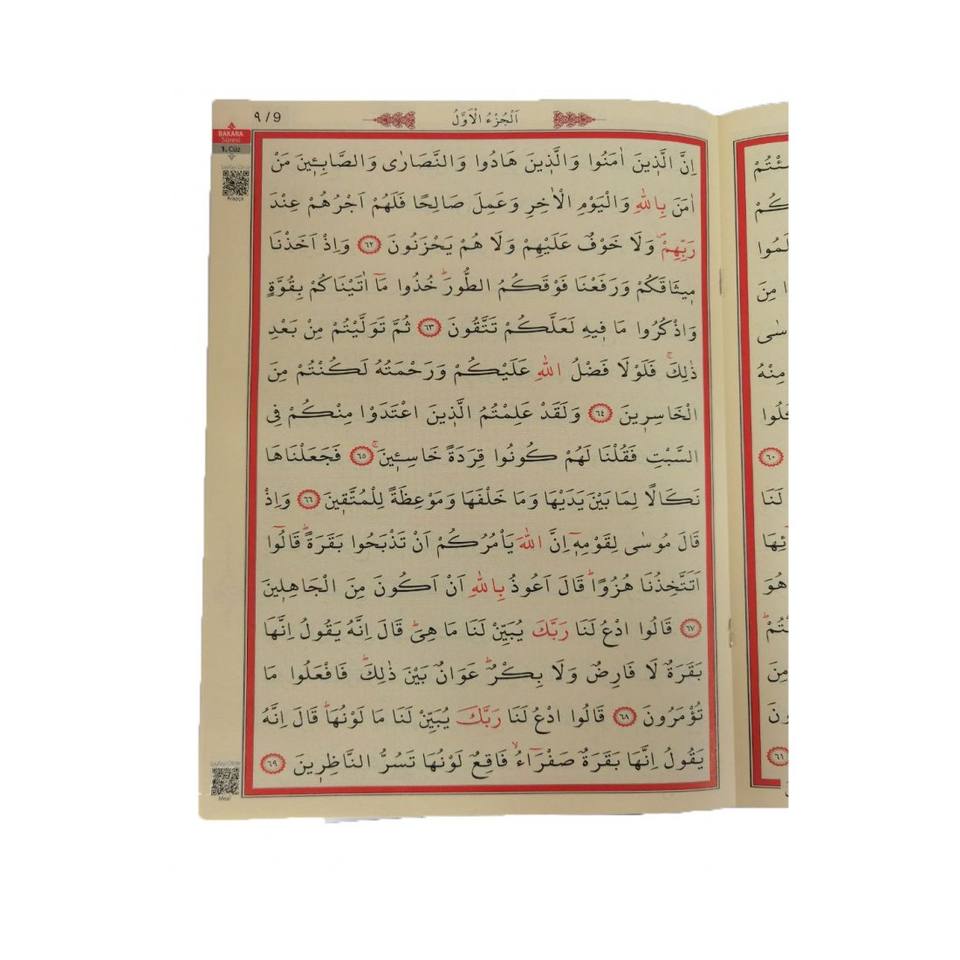 ٩ / 9
اَلْجُزْءُ الْاَوَّلُ
BAKARA
Sûresi
1. Cüz
اِنَّ الَّذ۪ينَ اٰمَنُوا وَالَّذ۪ينَ هَادُوا وَالنَّصَارٰى وَالصَّابِـ۪ٔينَ مَنْ
اٰمَنَ بِاللّٰهِ وَالْيَوْمِ الْاٰخِرِ وَعَمِلَ صَالِحًا فَلَهُمْ اَجْرُهُمْ عِنْدَ
رَبِّهِمْۖ وَلَا خَوْفٌ عَلَيْهِمْ وَلَا هُمْ يَحْزَنُونَ ﴿٦٢﴾ وَاِذْ اَخَذْنَا
م۪يثَاقَكُمْ وَرَفَعْنَا فَوْقَكُمُ الطُّورَۜ خُذُوا مَٓا اٰتَيْنَاكُمْ بِقُوَّةٍ
وَاذْكُرُوا مَا ف۪يهِ لَعَلَّكُمْ تَتَّقُونَ ﴿٦٣﴾ ثُمَّ تَوَلَّيْتُمْ مِنْ بَعْدِ
ذٰلِكَۚ فَلَوْلَا فَضْلُ اللّٰهِ عَلَيْكُمْ وَرَحْمَتُهُ لَكُنْتُمْ مِنَ
الْخَاسِر۪ينَ ﴿٦٤﴾ وَلَقَدْ عَلِمْتُمُ الَّذ۪ينَ اعْتَدَوْا مِنْكُمْ فِي
السَّبْتِ فَقُلْنَا لَهُمْ كُونُوا قِرَدَةً خَاسِـ۪ٔينَۚ ﴿٦٥﴾ فَجَعَلْنَاهَا
نَكَالًا لِمَا بَيْنَ يَدَيْهَا وَمَا خَلْفَهَا وَمَوْعِظَةً لِلْمُتَّق۪ينَ ﴿٦٦﴾ وَاِذْ
قَالَ مُوسٰى لِقَوْمِه۪ٓ اِنَّ اللّٰهَ يَأْمُرُكُمْ اَنْ تَذْبَحُوا بَقَرَةًۜ قَالُٓوا
اَتَتَّخِذُنَا هُزُوًاۜ قَالَ اَعُوذُ بِاللّٰهِ اَنْ اَكُونَ مِنَ الْجَاهِل۪ينَ
﴿٦٧﴾ قَالُوا ادْعُ لَنَا رَبَّكَ يُبَيِّنْ لَنَا مَا هِيَۜ قَالَ اِنَّهُ يَقُولُ اِنَّهَا
بَقَرَةٌ لَا فَارِضٌ وَلَا بِكْرٌۜ عَوَانٌ بَيْنَ ذٰلِكَۜ فَافْعَلُوا مَا
تُؤْمَرُونَ ﴿٦٨﴾ قَالُوا ادْعُ لَنَا رَبَّكَ يُبَيِّنْ لَنَا مَا لَوْنُهَاۜ قَالَ اِنَّهُ
يَقُولُ اِنَّهَا بَقَرَةٌ صَفْرَٓاءُۙ فَاقِعٌ لَوْنُهَا تَسُرُّ النَّاظِر۪ينَ ﴿٦٩﴾
Meal
كُمْ
مِنَ
مِنْهُ
﴿٦٠﴾
لَنَا
هُوَ
﴿٦١﴾